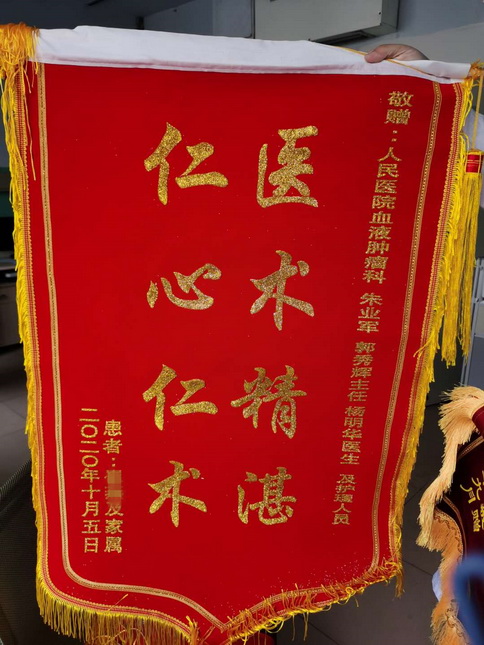 敬赠：人民医院血液肿瘤科 朱业军 郭秀辉主任 杨明华医生 及护理人员
医术精湛
仁心仁术
患者：及家属
二〇二〇年十月五日